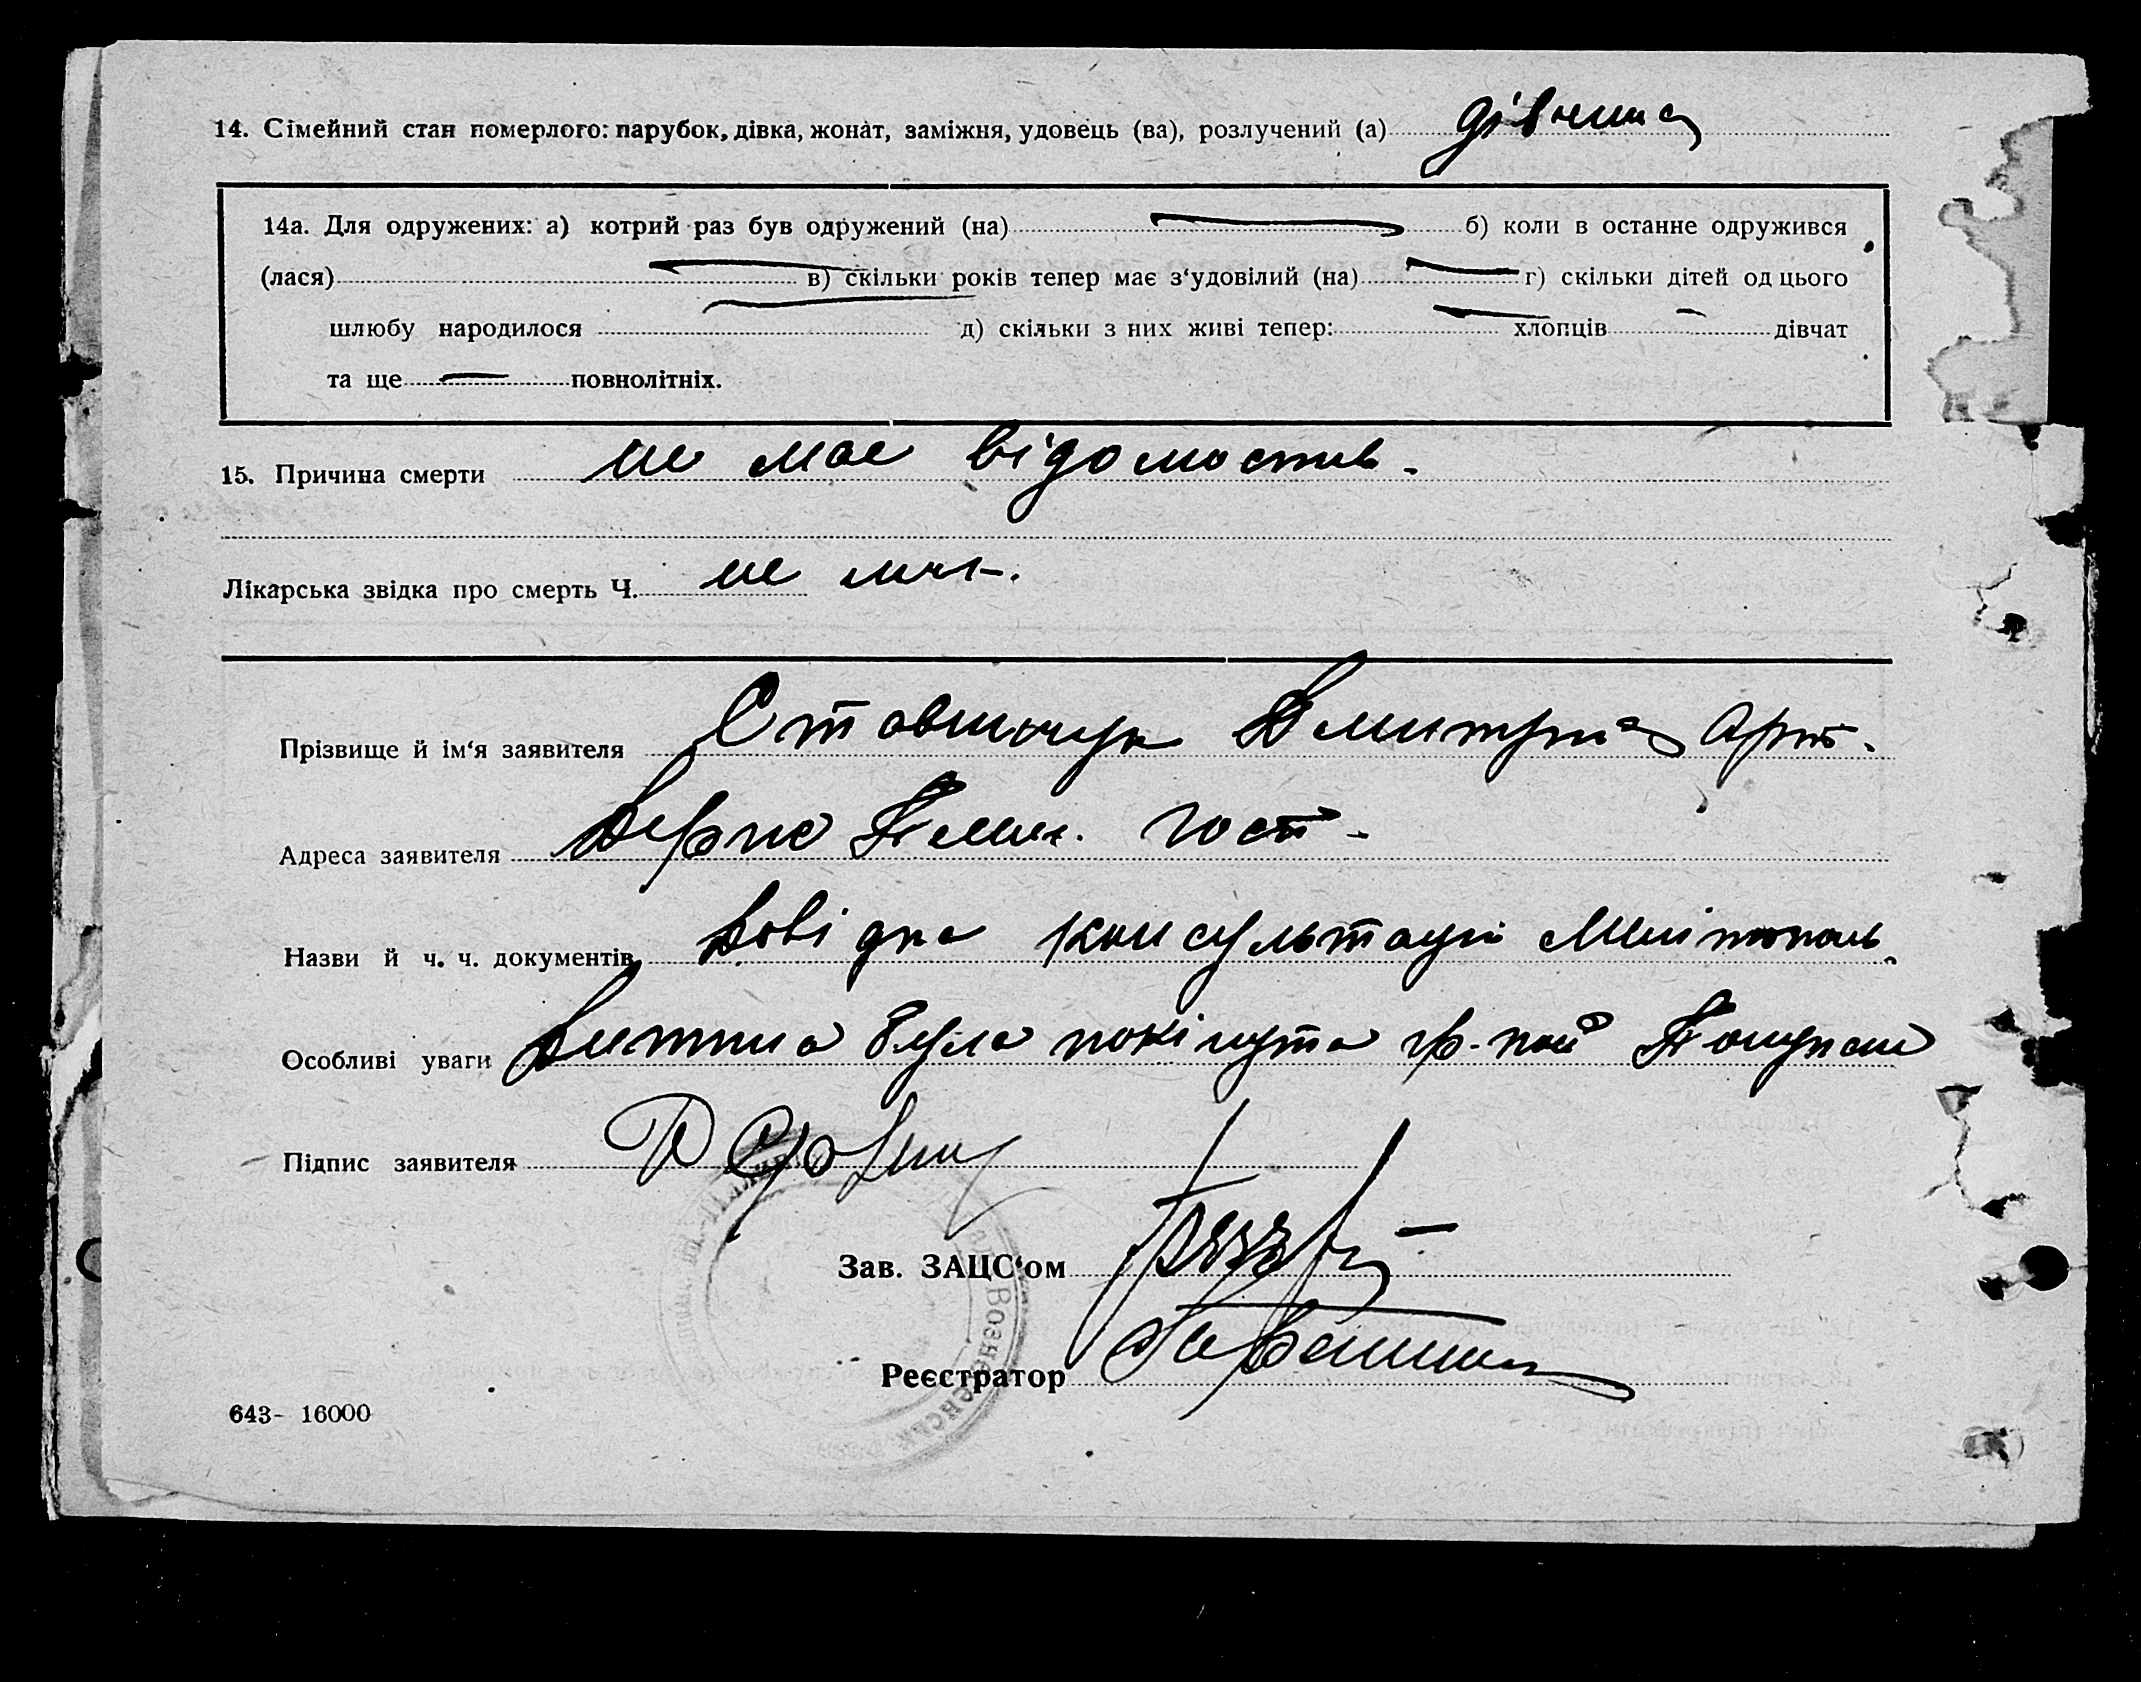 14. Сімейний стан померлого: парубок, дівка, жонат, заміжня, удовець (ва), розлучений (а) дівчина
14а. Для одружених: а) котрий раз був одружений (на) б) коли в останне одружився
(лася) в) скільки років тепер має з‘удовілий (на) г) скільки дітей од цього
шлюбу народилося д) скільки з них живі тепер: хлопців дівчат
та ще повнолітніх.
15. Причина смерти не має відомостив.
Лікарська звідка про смерть Ч. не має.
Прізвище й ім‘я заявителя Ставничук Дмитрий Арт.
Адреса заявителя
Назви й ч. ч. документів Довідка консультації
Особливі уваги Дитина була покінута гр-кой
Підпис заявителя
Зав. ЗАЦС‘ом
Реєстратор
643- 16000